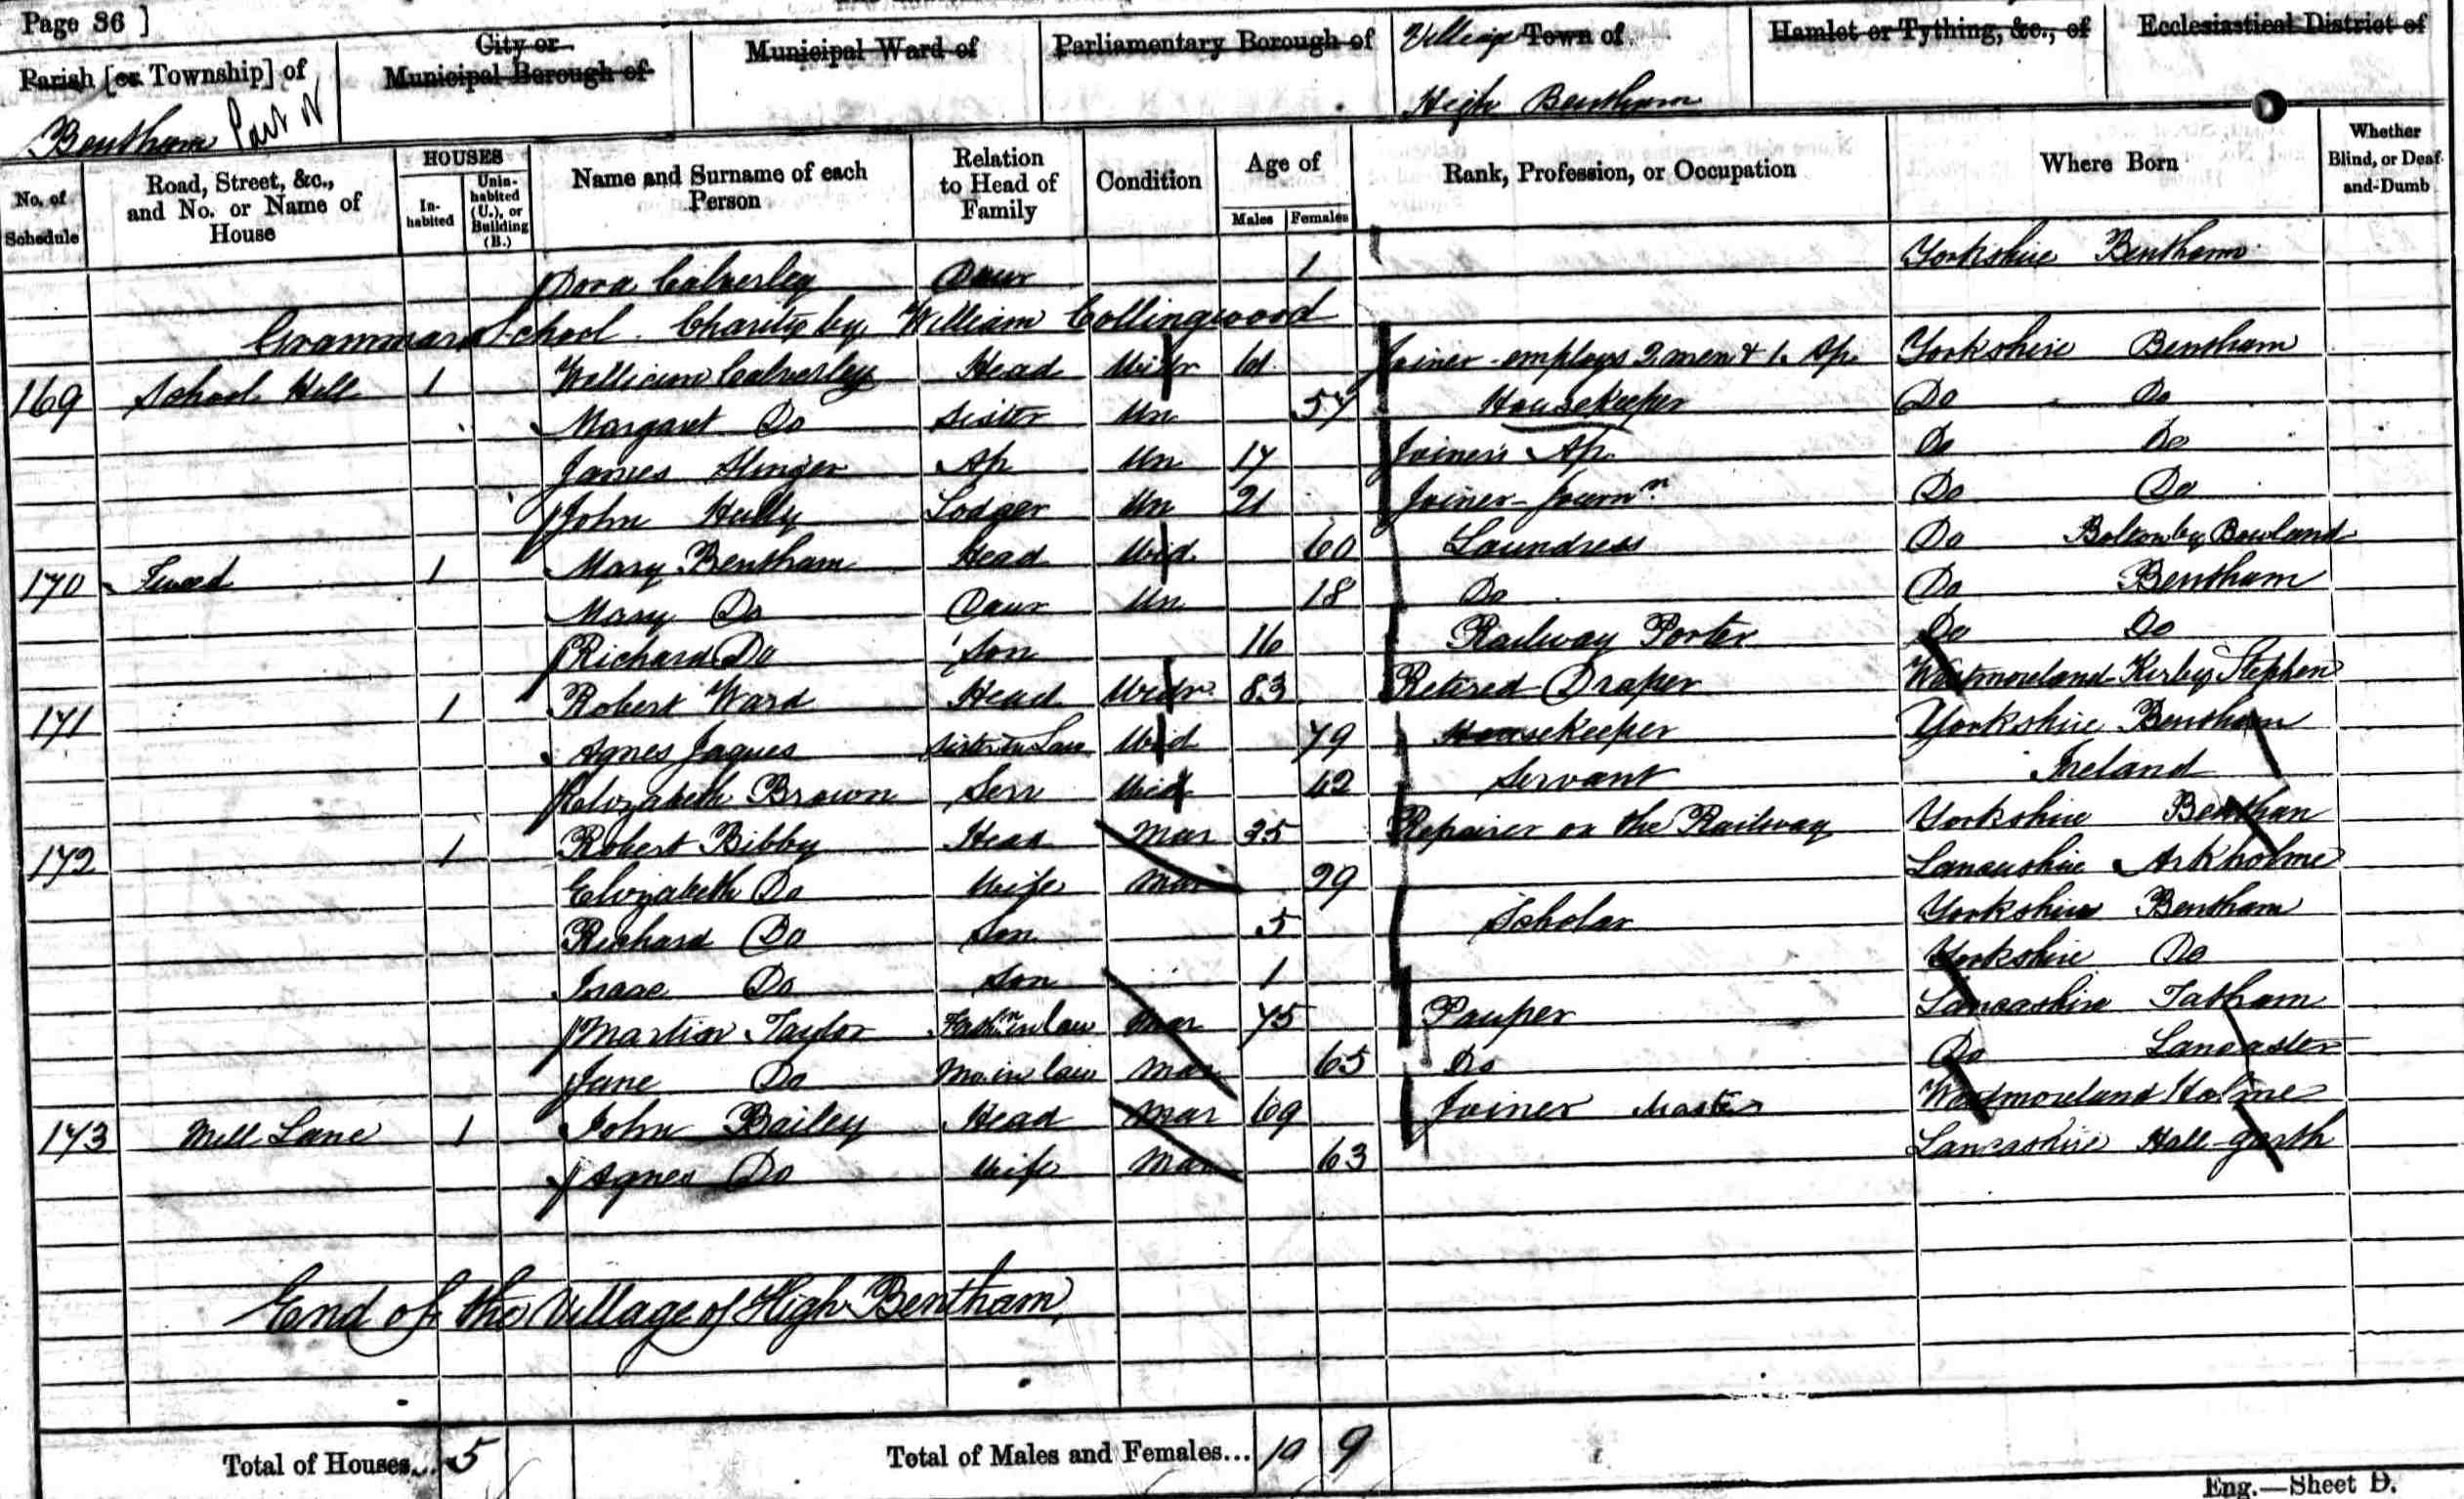 Page 36 ]
Parish [or Township] of
Bentham Part of
City or
Municipal Borough of
Municipal Ward of
Parliamentary Borough of
Village Town of
High Bentham
Hamlet or Tything, &c., of
Ecclesiastical District of
No. of Schedule
Road, Street, &c., and No. or Name of House
HOUSES
In-habited
Unin-habited (U.), or Building (B.)
Name and Surname of each Person
Relation to Head of Family
Condition
Age of
Males Females
Rank, Profession, or Occupation
Where Born
Whether Blind, or Deaf-and-Dumb
Dora Calverley Daur 1 Yorkshire Bentham
Grammar School. Charity by William Collingwood
169 School Hill 1 William Calverley Head Widr 61 Joiner employs 2 men & 1 Ap. Yorkshire Bentham
Margaret Do Sister Un 57 Housekeeper Do Do
James Slinger Ap Un 17 Joiner's Ap. Do Do
John Hully Lodger Un 21 Joiner-Journn. Do Do
170 1 Mary Bentham Head Wid 60 Laundress Do Bowland
Mary Do Daur Un 18 Do Do Bentham
Richard Do Son 16 Railway Porter Do Do
171 1 Robert Ward Head Widr 83 Retired Draper Westmoreland Kirby Stephen
Agnes Jaques Sister in Law Wid 79 Housekeeper Yorkshire Bentham
Elizabeth Brown Serv Wid 62 Servant Ireland
172 1 Robert Bibby Head Mar 35 Repairer on the Railway Yorkshire Bentham
Elizabeth Do Wife Mar 29 Lancashire Arkholme
Richard Do Son 5 Scholar Yorkshire Bentham
Isaac Do Son 1 Yorkshire Do
Martin Taylor Fathr in law Mar 75 Pauper Lancashire Tatham
Jane Do Mo in law Mar 65 Do Do Lancaster
173 Mill Lane 1 John Bailey Head Mar 69 Joiner Master Westmoreland Holme
Agnes Do Wife Mar 63 Lancashire Hall-garth
End of the Village of High Bentham
Total of Houses... 5
Total of Males and Females... 10 9
Eng.—Sheet D.